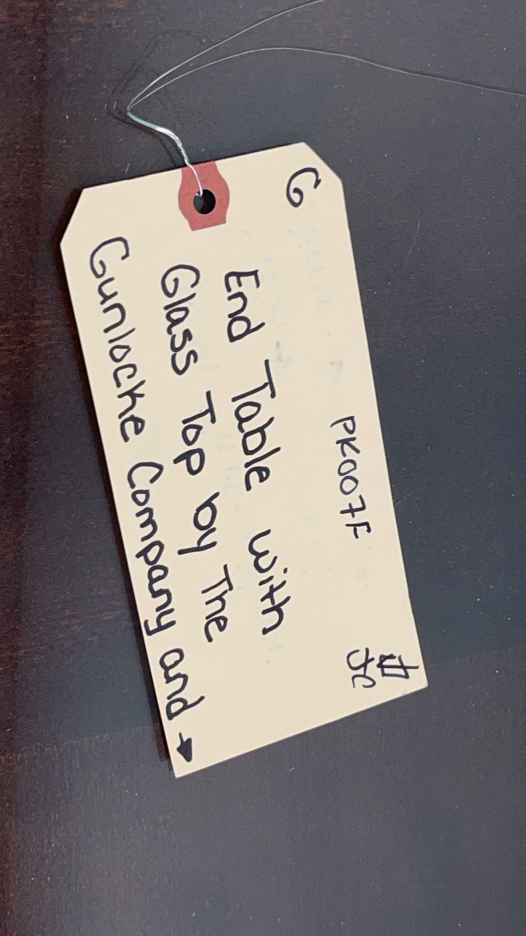 G
PK007F
End Table with
Glass Top by The
Gunlocke Company and →